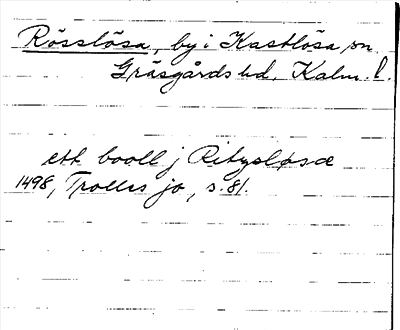 Rösslösa, by i Kastlösa sn.
Gräsgårds hd. Kalm. l.
ett booll j Ritzsløsæ
1498, Trolles jo, s. 81.